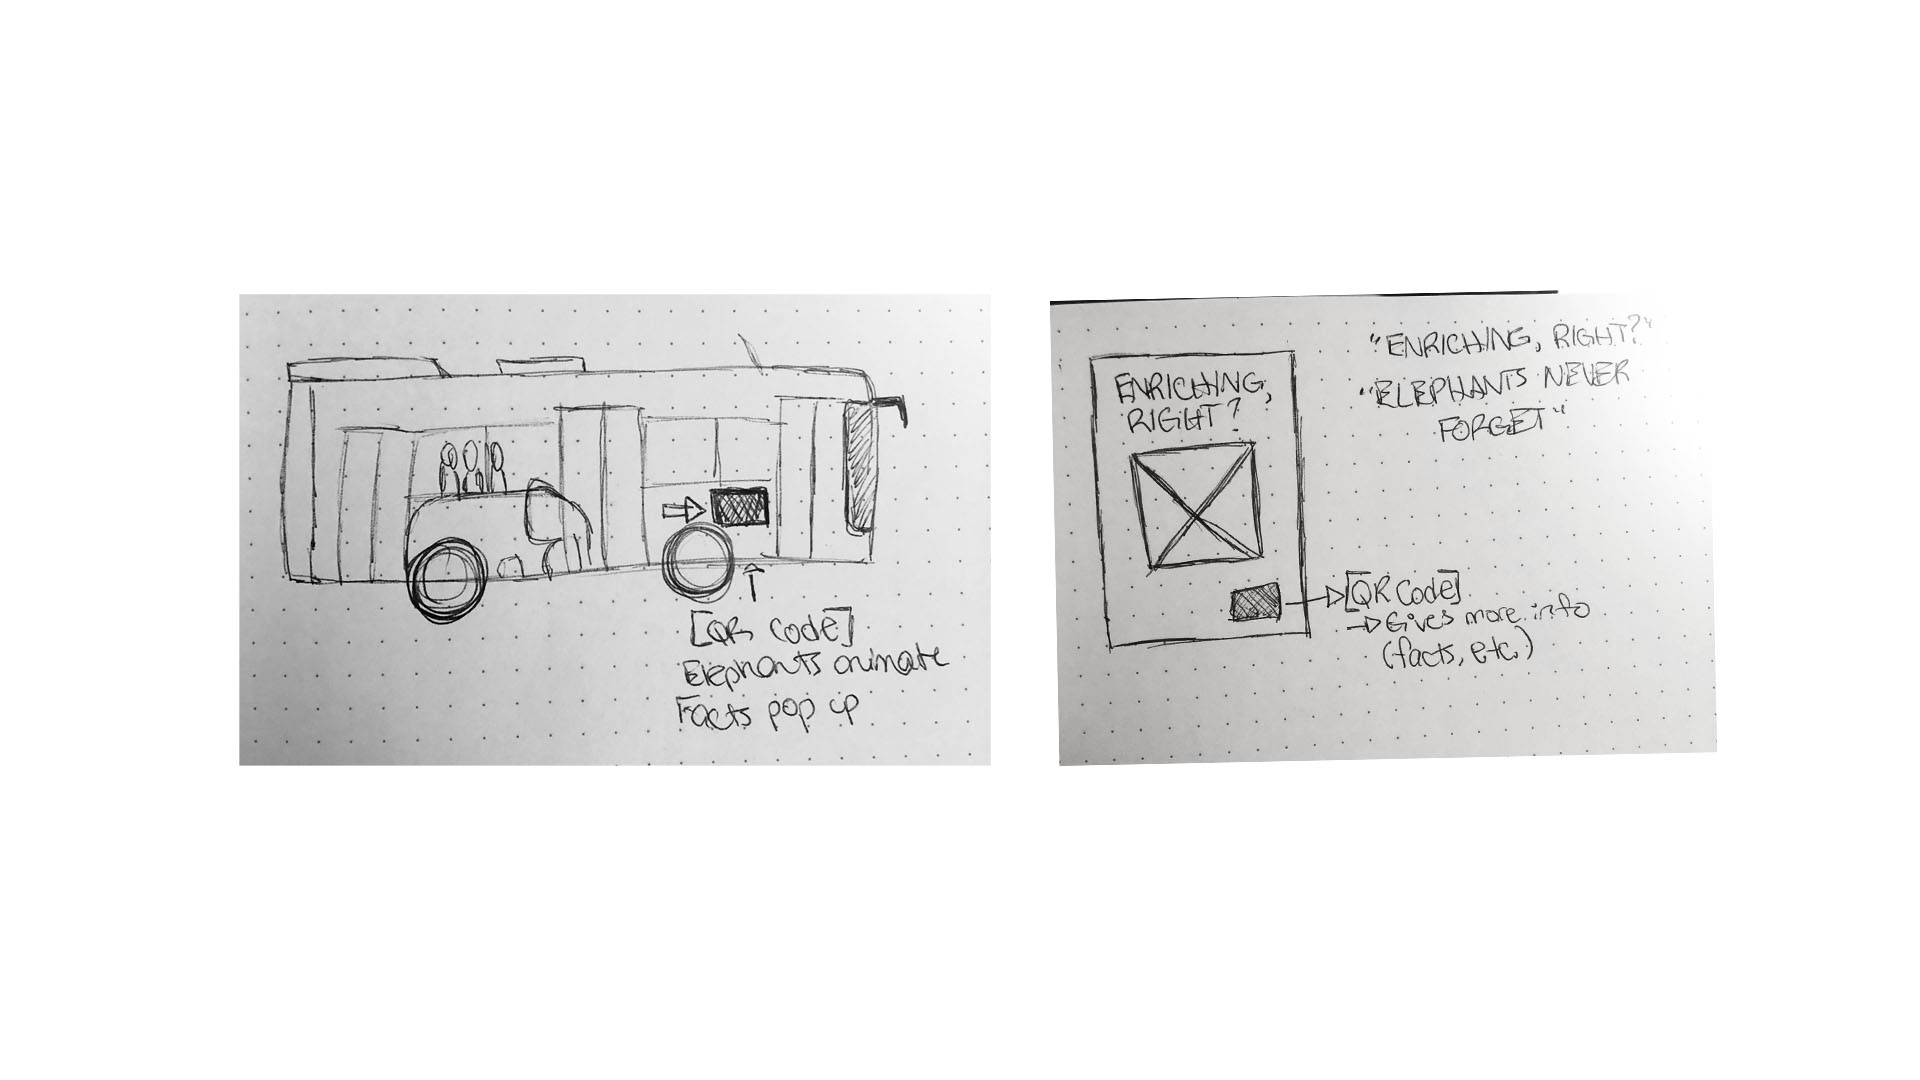 [QR code]
Elephants animate
Facts pop up
ENRICHING,
RIGHT?
"ENRICHING, RIGHT?"
"ELEPHANTS NEVER
FORGET"
[QR Code]
→ Gives more info
(facts, etc.)